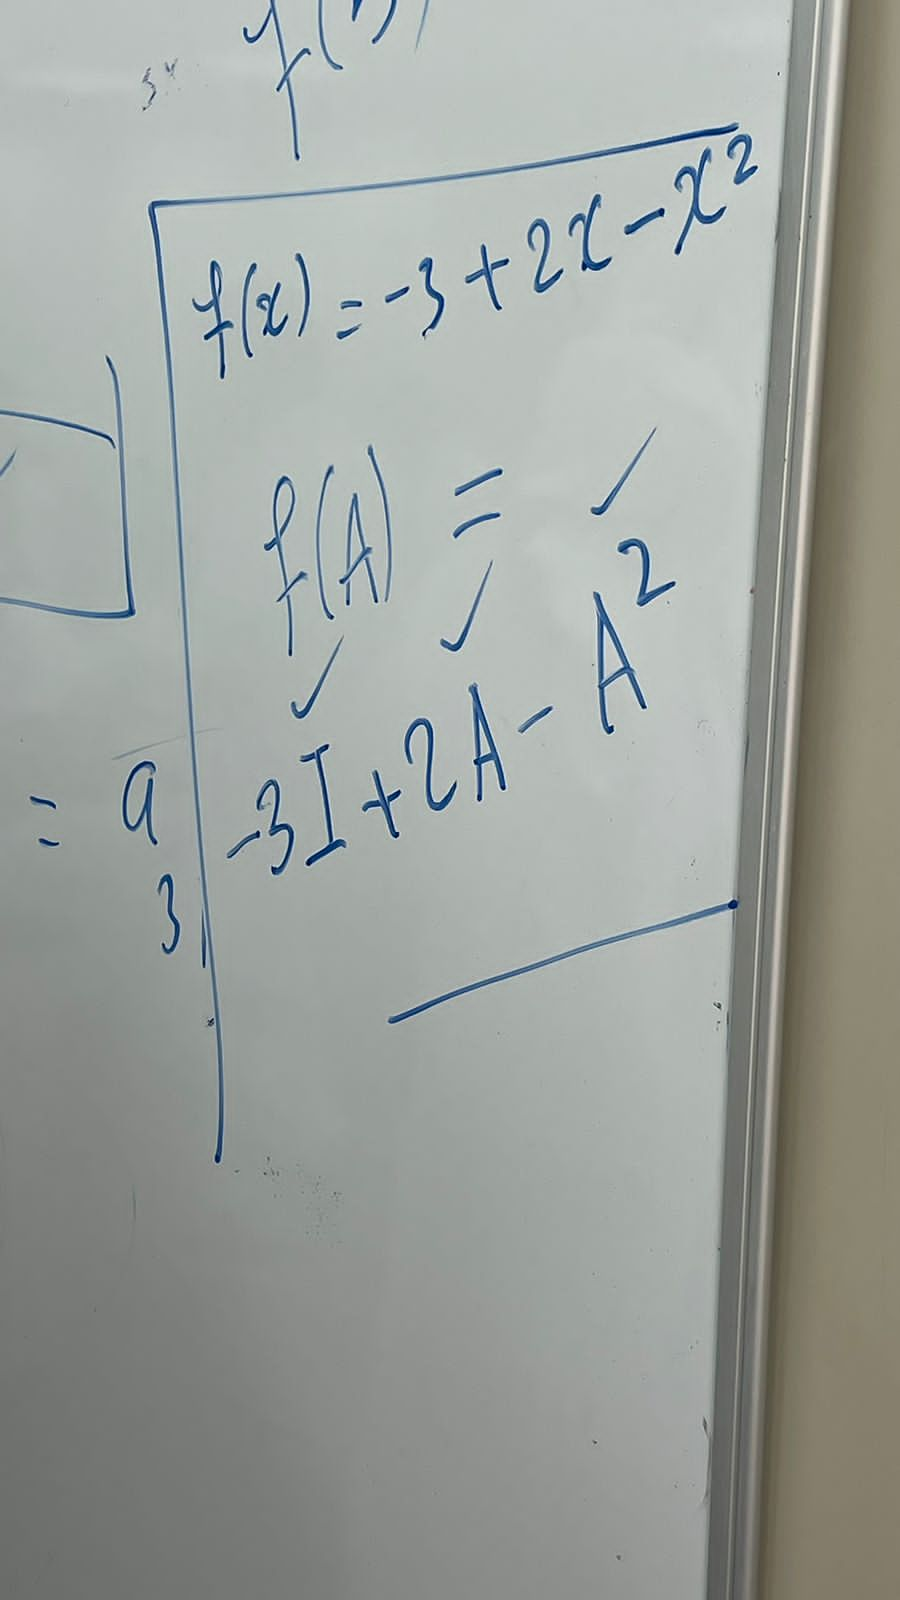 f(x) = -3 + 2x - x²
f(A) =
-3I + 2A - A²
= a
3